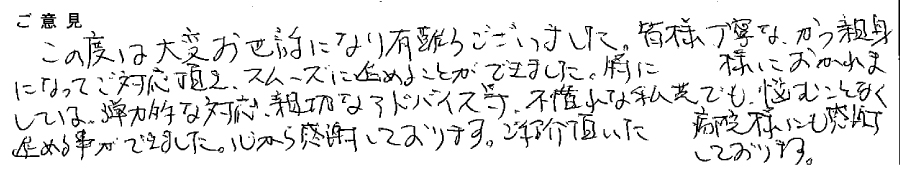 ご意見
この度は大変お世話になり有難うございました。皆様丁寧な、かつ親身
になってご対応頂き、スムーズに進めることができました。特に 様におかれま
しては、弾力的な対応、親切なアドバイス等、不慣れな私共でも、悩むことなく
進める事ができました。心から感謝しております。ご紹介頂いた 病院様にも感謝
しております。